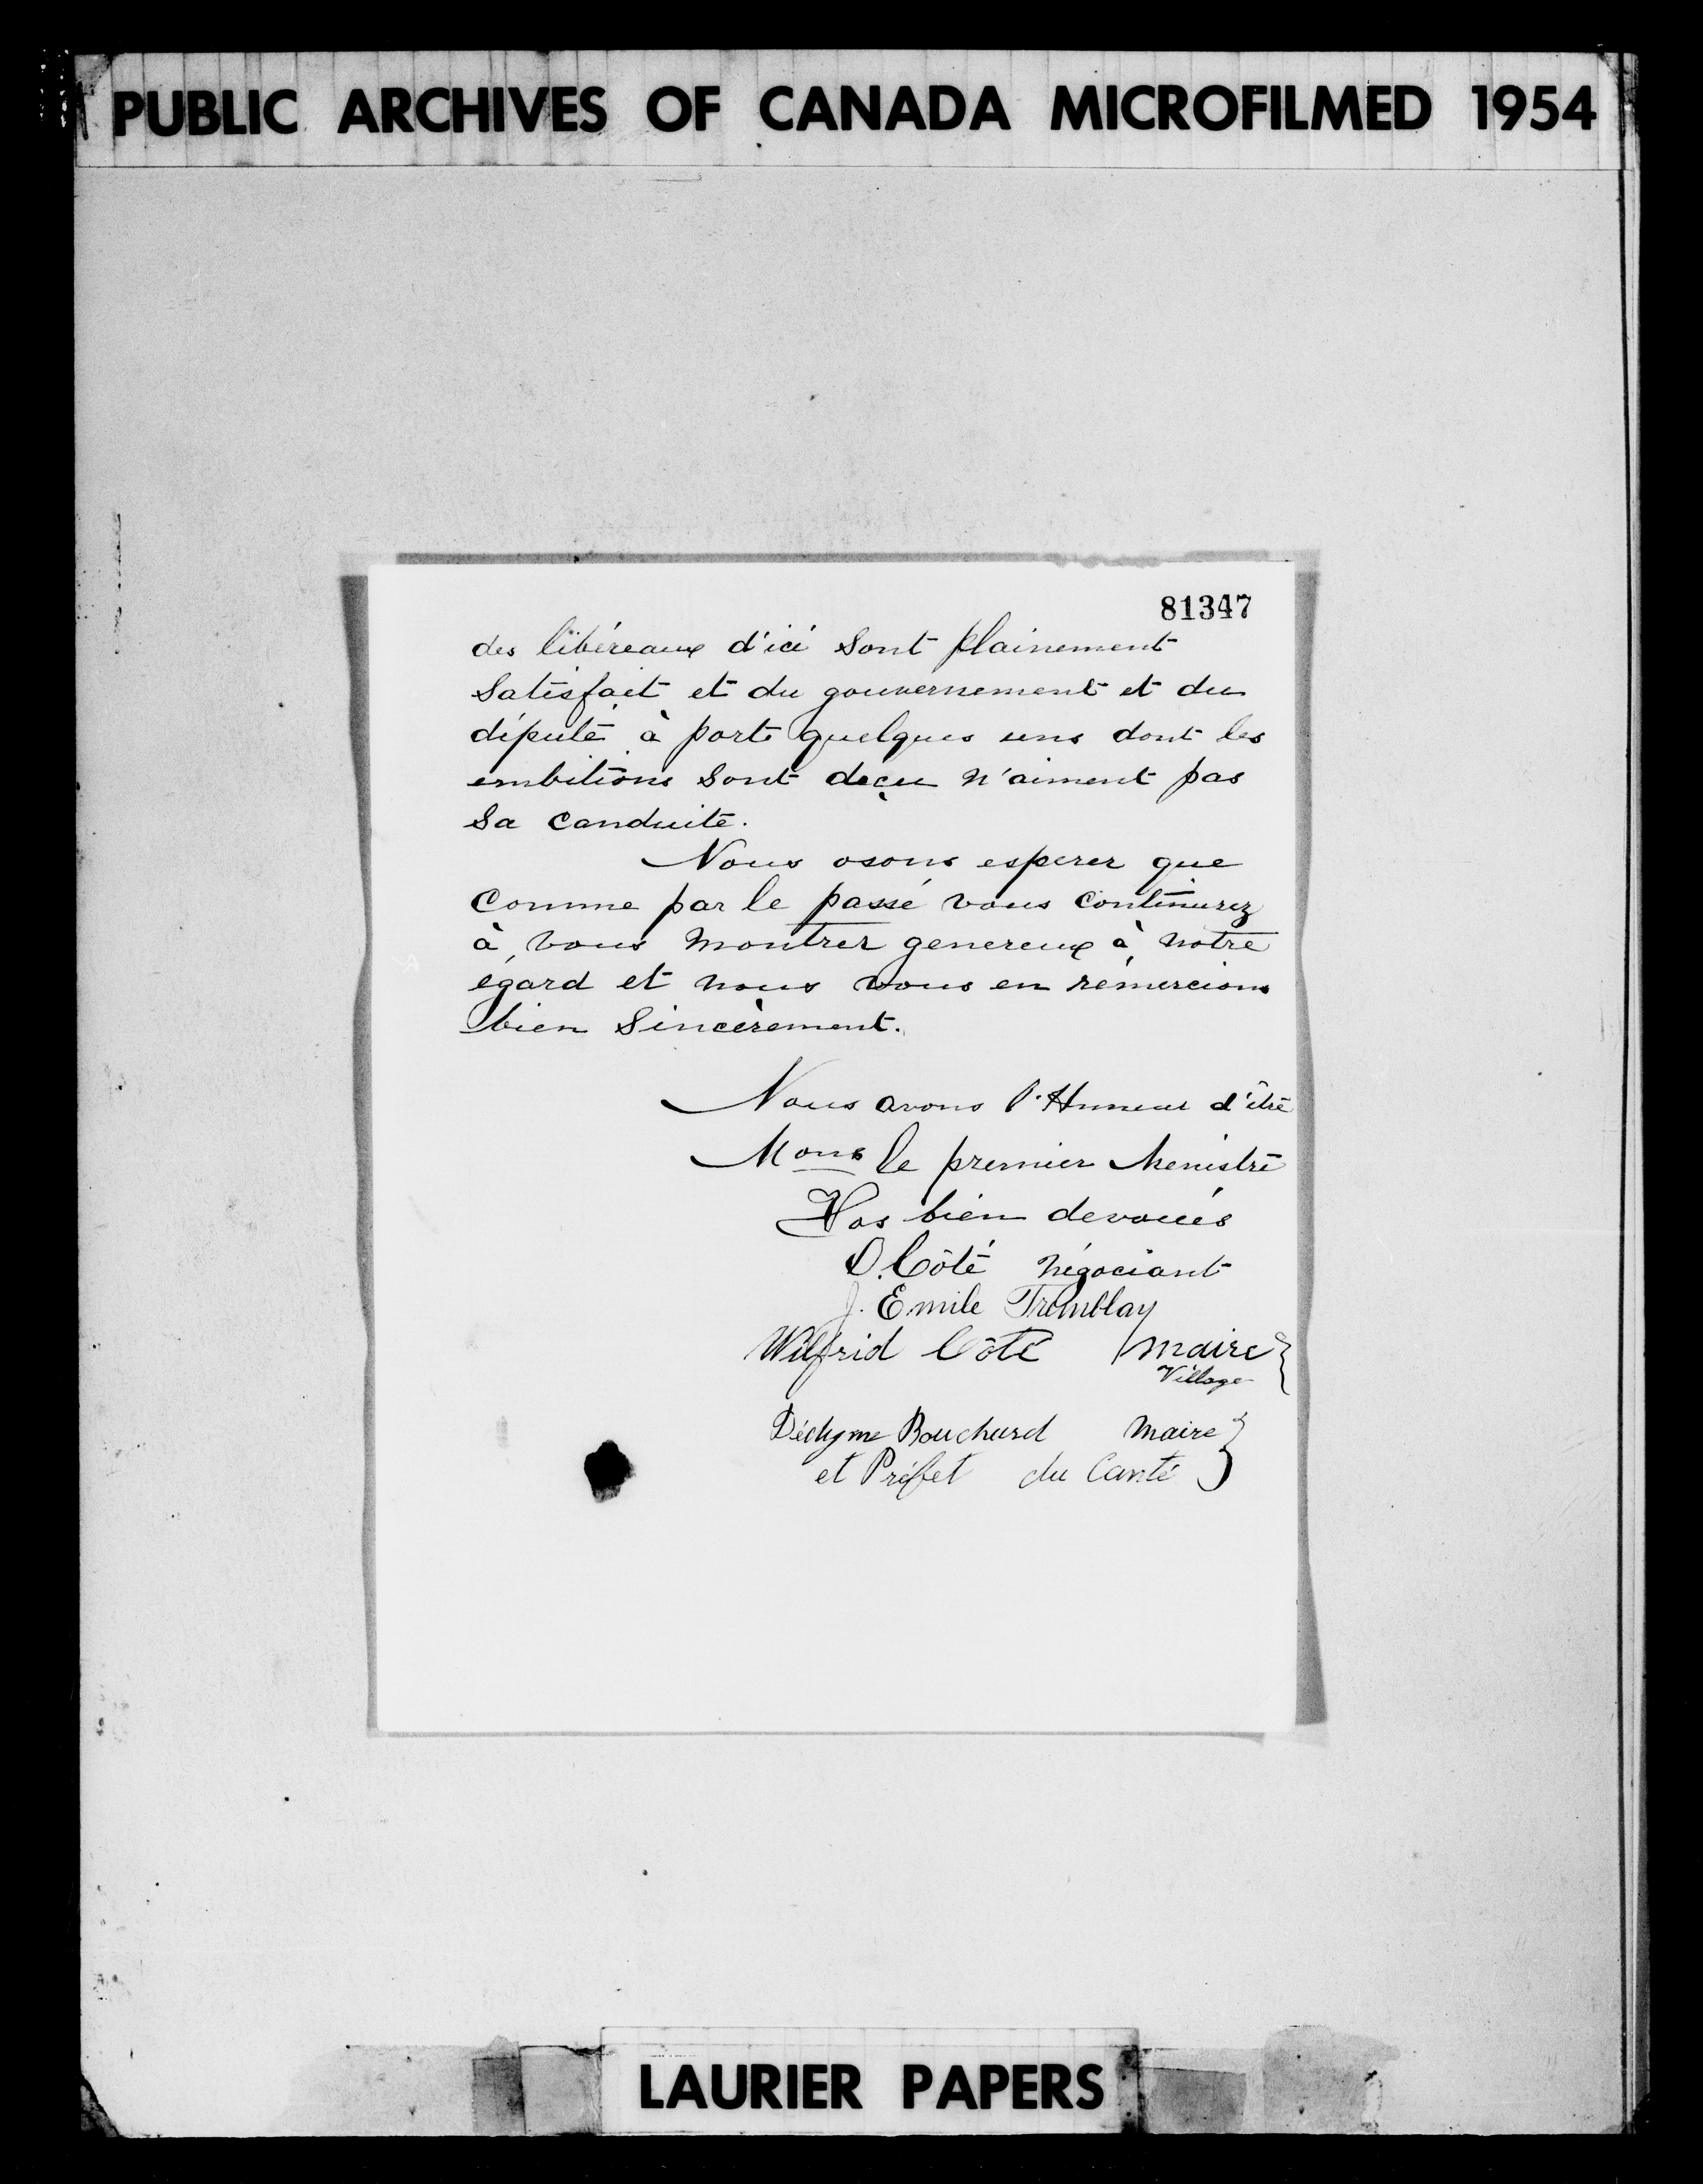 PUBLIC ARCHIVES OF CANADA MICROFILMED 1954
81347
des libéreaux d'ici sont plainement
satisfait et du gouvernement et du
député à parts quelques uns dont les
embitions sont deçu n'aiment pas
sa conduite.
Nous osons esperer que
comme par le passé vous continurez
à vous montrer genereux à notre
égard et nous vous en rémercions
bien sincèrement.
Nous avons l'Hunneur d'être
Mons le premier Menistre
Vos bien devoués
O. Côté négociant
J. Emile Tremblay
Wilfrid Côté maire
Village
Bouchard maire
et Préfet du Conté
LAURIER PAPERS